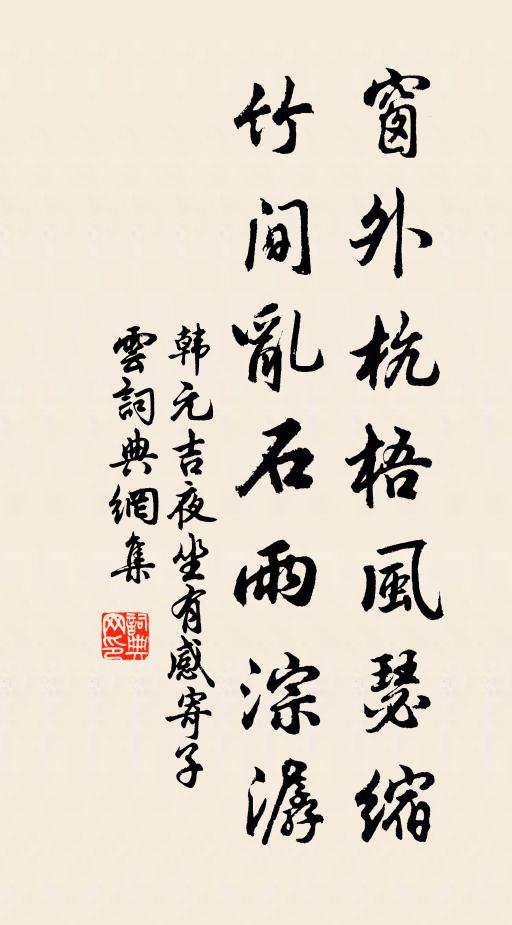 窗外杭梧風瑟縮
竹間亂石雨淙潺
韩元吉夜坐有感寄子
雲詞典網集
詞典网印